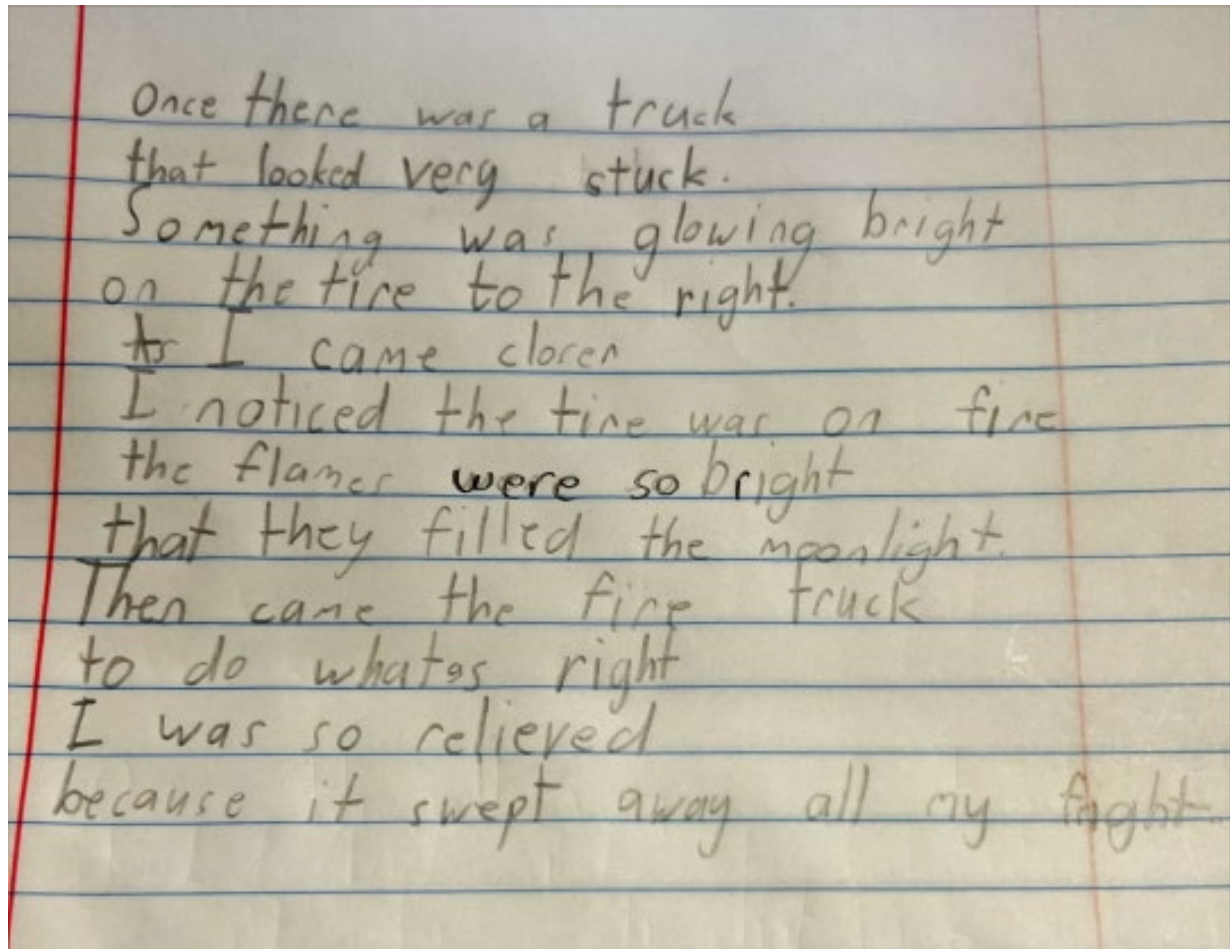 Once there was a truck
that looked very stuck.
Something was glowing bright
on the tire to the right.
As I came closer
I noticed the tire was on fire
the flames were so bright
that they filled the moonlight.
Then came the fire truck
to do whates right
I was so relieved
because it swept away all my fright.